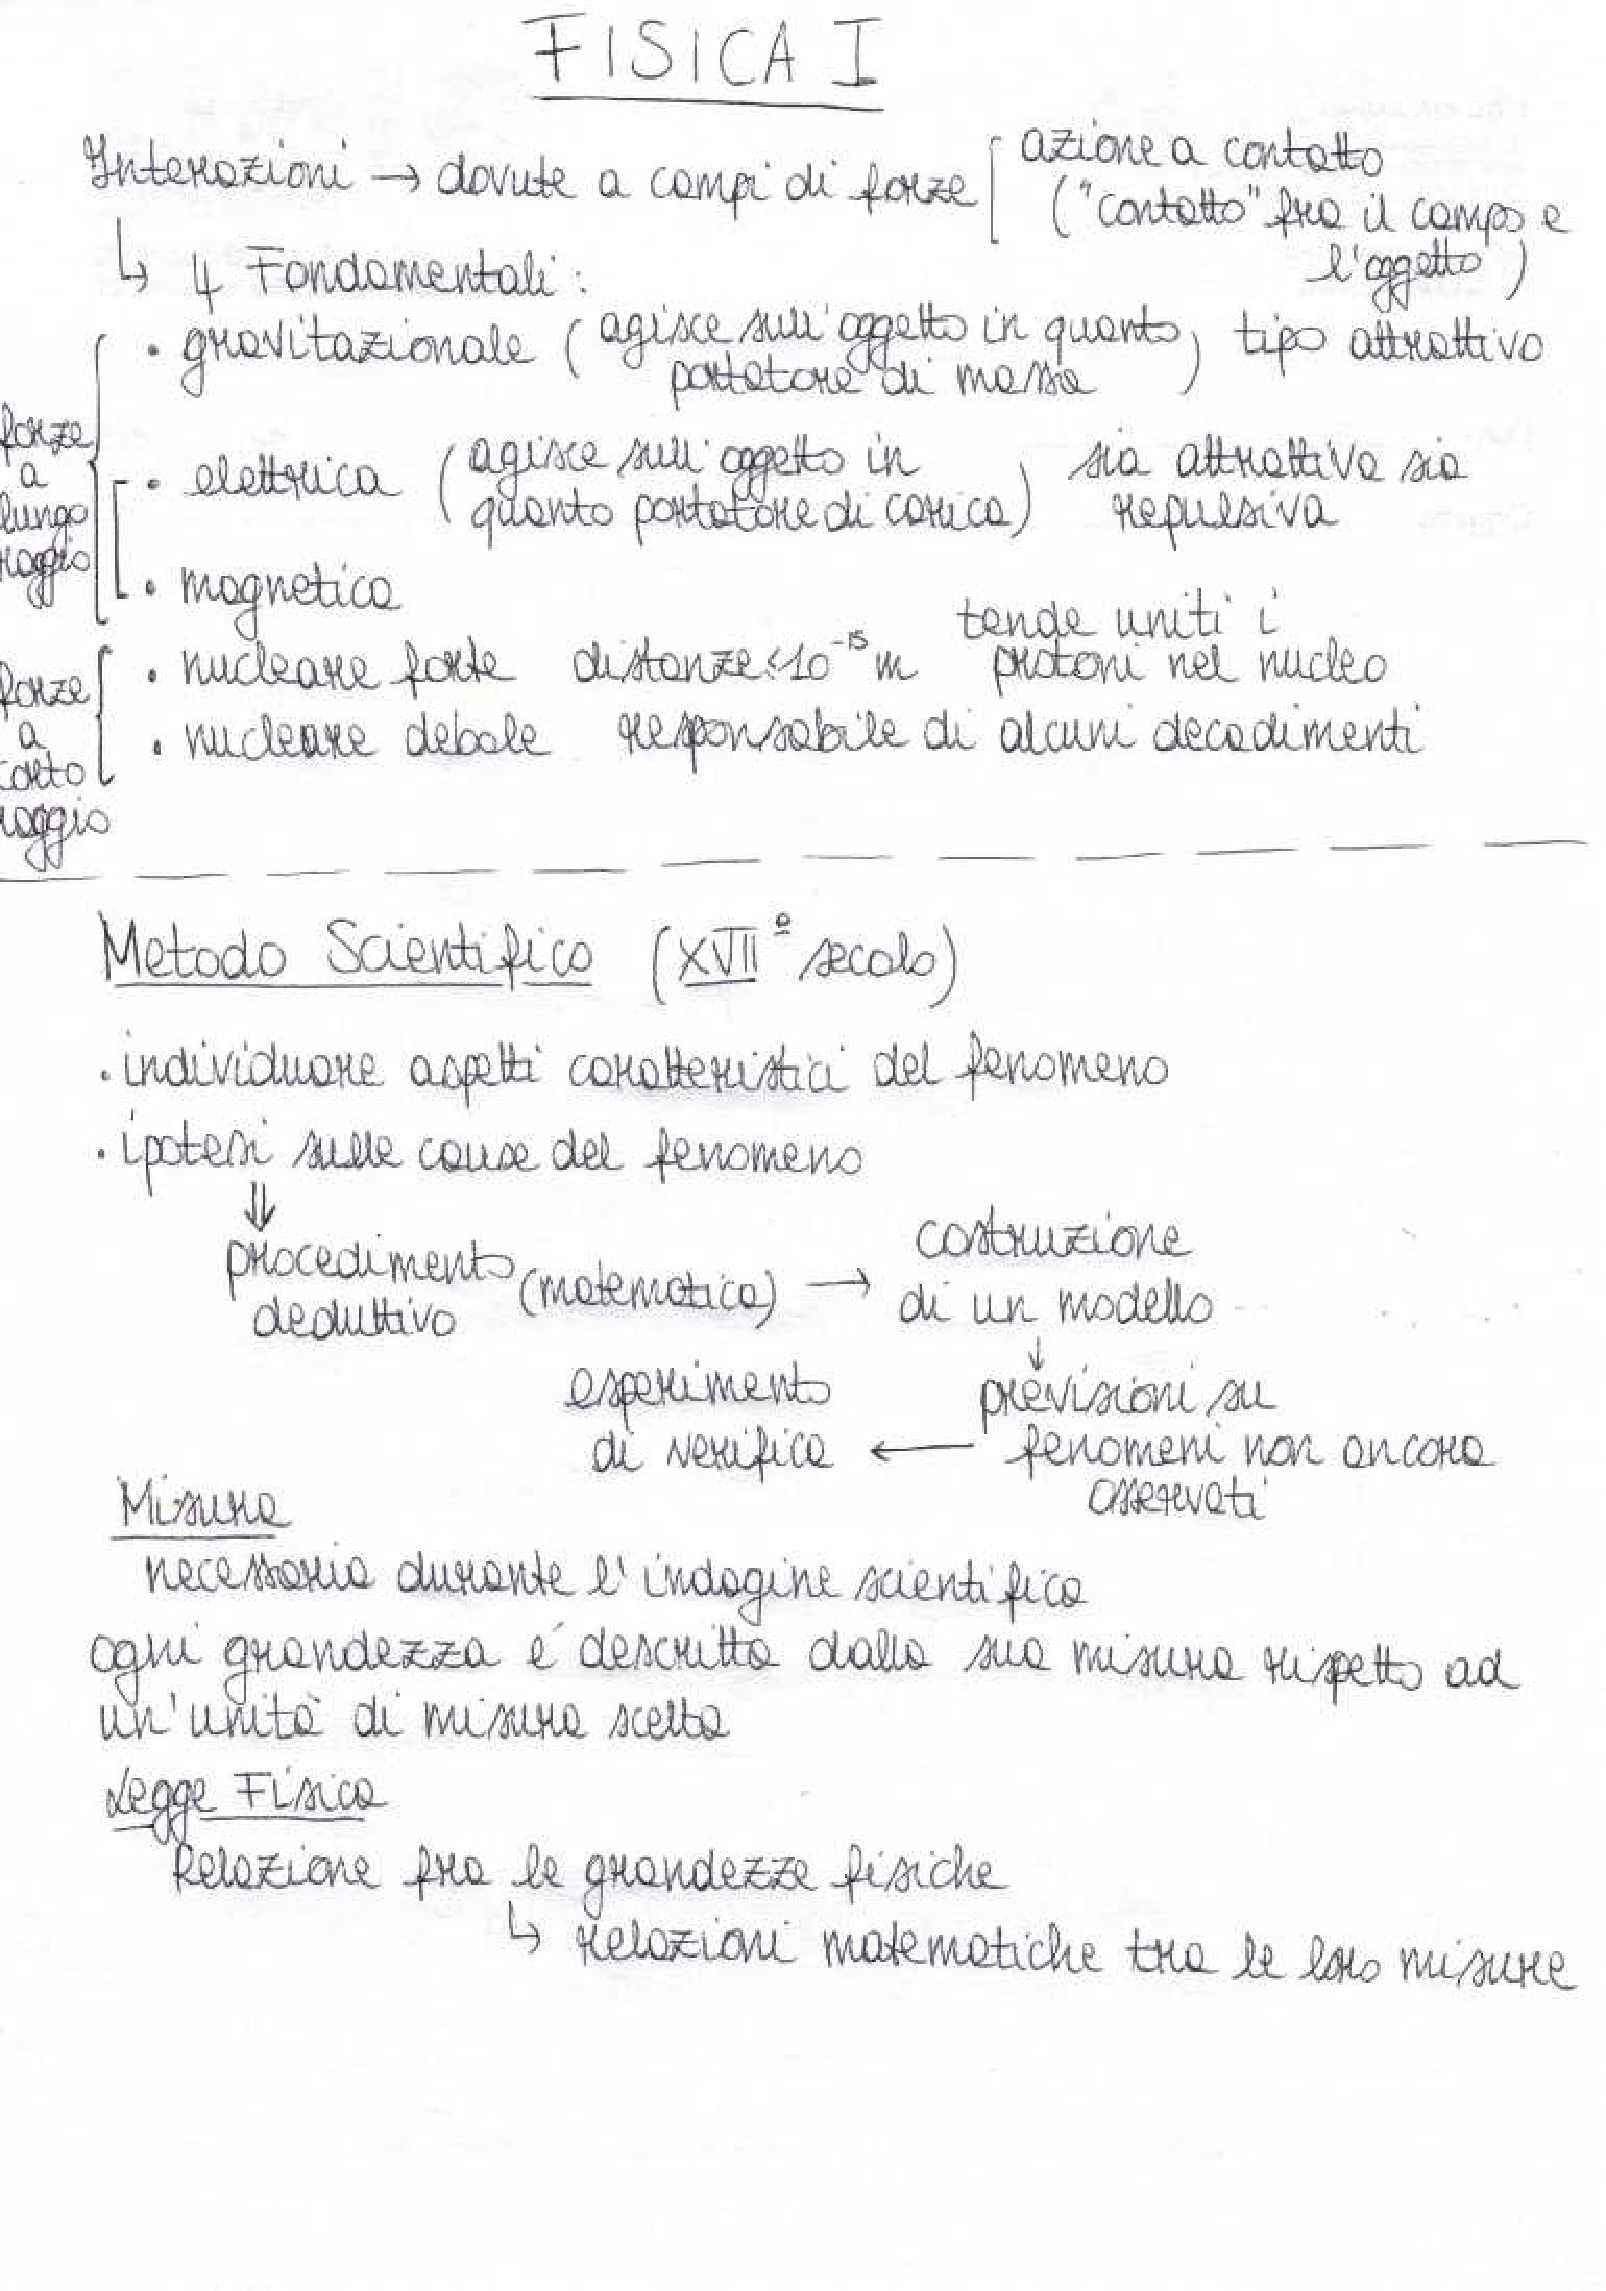 FISICA I
Interazioni → dovute a campi di forze [ azione a contatto
("contatto" fra il campo e
l'oggetto)
↳ 4 Fondamentali:
forze a lungo raggio
• gravitazionale (agisce sull'oggetto in quanto portatore di massa) tipo attrattivo
• elettrica (agisce sull'oggetto in quanto portatore di carica) sia attrattiva sia repulsiva
• magnetica
forze a corto raggio
• nucleare forte distanze<10⁻¹⁵ m tende uniti i protoni nel nucleo
• nucleare debole responsabile di alcuni decadimenti
Metodo Scientifico (XVII° secolo)
• individuare aspetti caratteristici del fenomeno
• ipotesi sulle cause del fenomeno
⇓
procedimento deduttivo (matematica) → costruzione di un modello
↓
previsioni su
fenomeni non ancora
osservati
←
esperimento
di verifica
Misura
necessaria durante l'indagine scientifica
ogni grandezza é descritta dalla sua misura rispetto ad
un'unità di misura scelta
Legge Fisica
Relazione fra le grandezze fisiche
↳ relazioni matematiche tra le loro misure